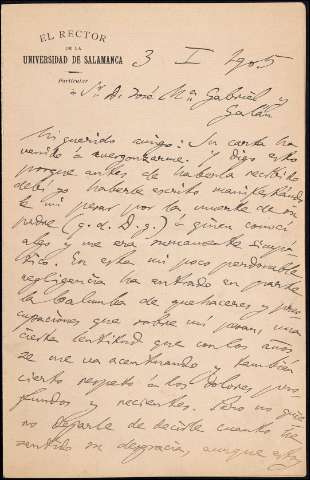 EL RECTOR
DE LA
UNIVERSIDAD DE SALAMANCA
Particular
3 I 1905
Sr. D. José Mª Gabriel y
Galán
Mi querido amigo: Su carta ha
venido á avergonzarme. Y digo esto
porque antes de haberla recibido
debí yo haberle escrito manifestándo
le mi pesar por la muerte de su
padre (q. e. D. g.) á quien conocí
algo y me era mercantente simpá
tico. En esta mi poco perdonable
negligencia ha entrado en parte
la balumba de quehaceres y preo
cupaciones que sobre mi pesan, una
cierta lentitud que con los años
se me va acentuando y también
cierto respeto á los dolores pro
fundos y recientes. Pero no quie
ro dejarle de decirle cuanto he
sentido su desgracia, aunque estoy